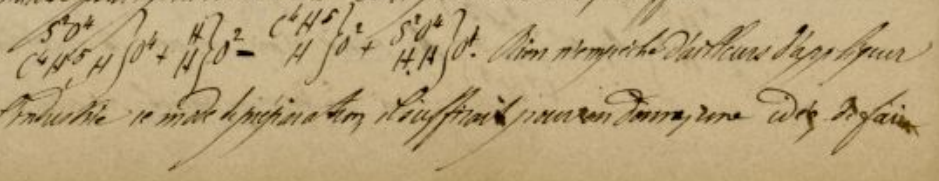 S²O⁴ / C⁴H⁵, H } O⁴ + H / H } O² = C⁴H⁵ / H } O² + S²O⁴ / H.H } O⁴. Rien n'empêche d'ailleurs d'appliquer
l'industrie ce mode de préparation, il suffirait pour en donner, une idée, de faire